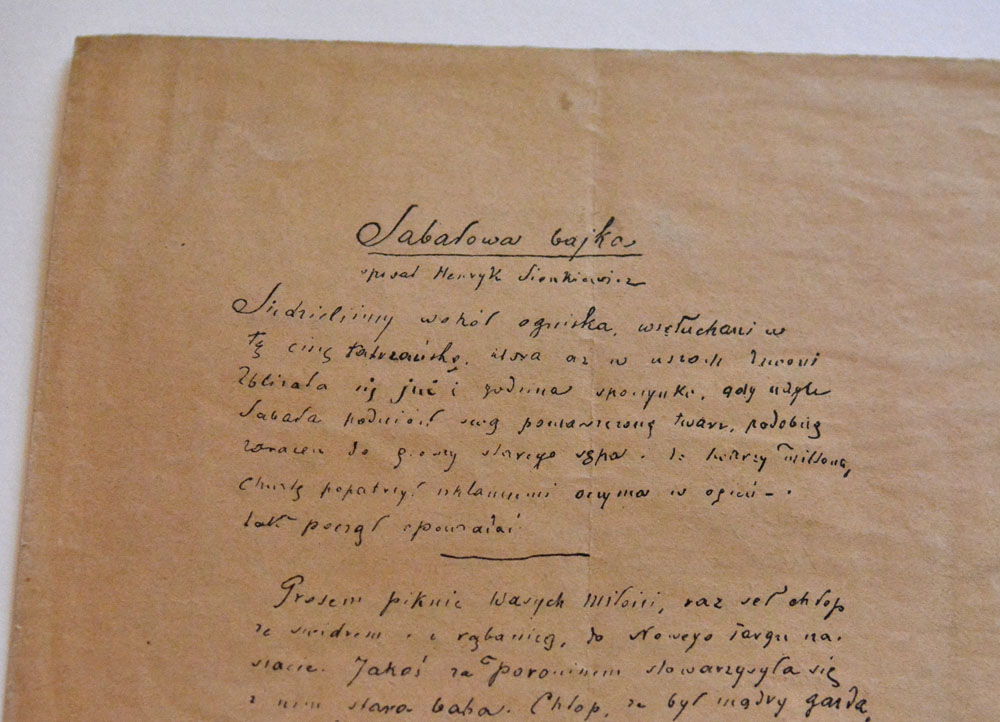 Sabałowa bajka
spisał Henryk Sienkiewicz
Siedzieliśmy wokół ogniska, wsłuchani w
tę ciszę tatrzańską, która aż w uszach dzwoni
Zbliżała się już i godzina spoczynku, gdy nagle
Sabała podniósł swą pomarszczoną twarz, podobną
zarazem do głowy starego sępa i do twarzy Miltona,
Chwilę popatrzył szklannemi oczyma w ogień – i
tak począł opowiadać
Prosem piknie Wasych Miłości, raz seł chłop
ze świdrem i z rąbanicą, do Nowego Targu na
stacie. Jakoś za Poroninem stowarzysyła się
z nim stara baba. Chłop, ze był mądry gazda,